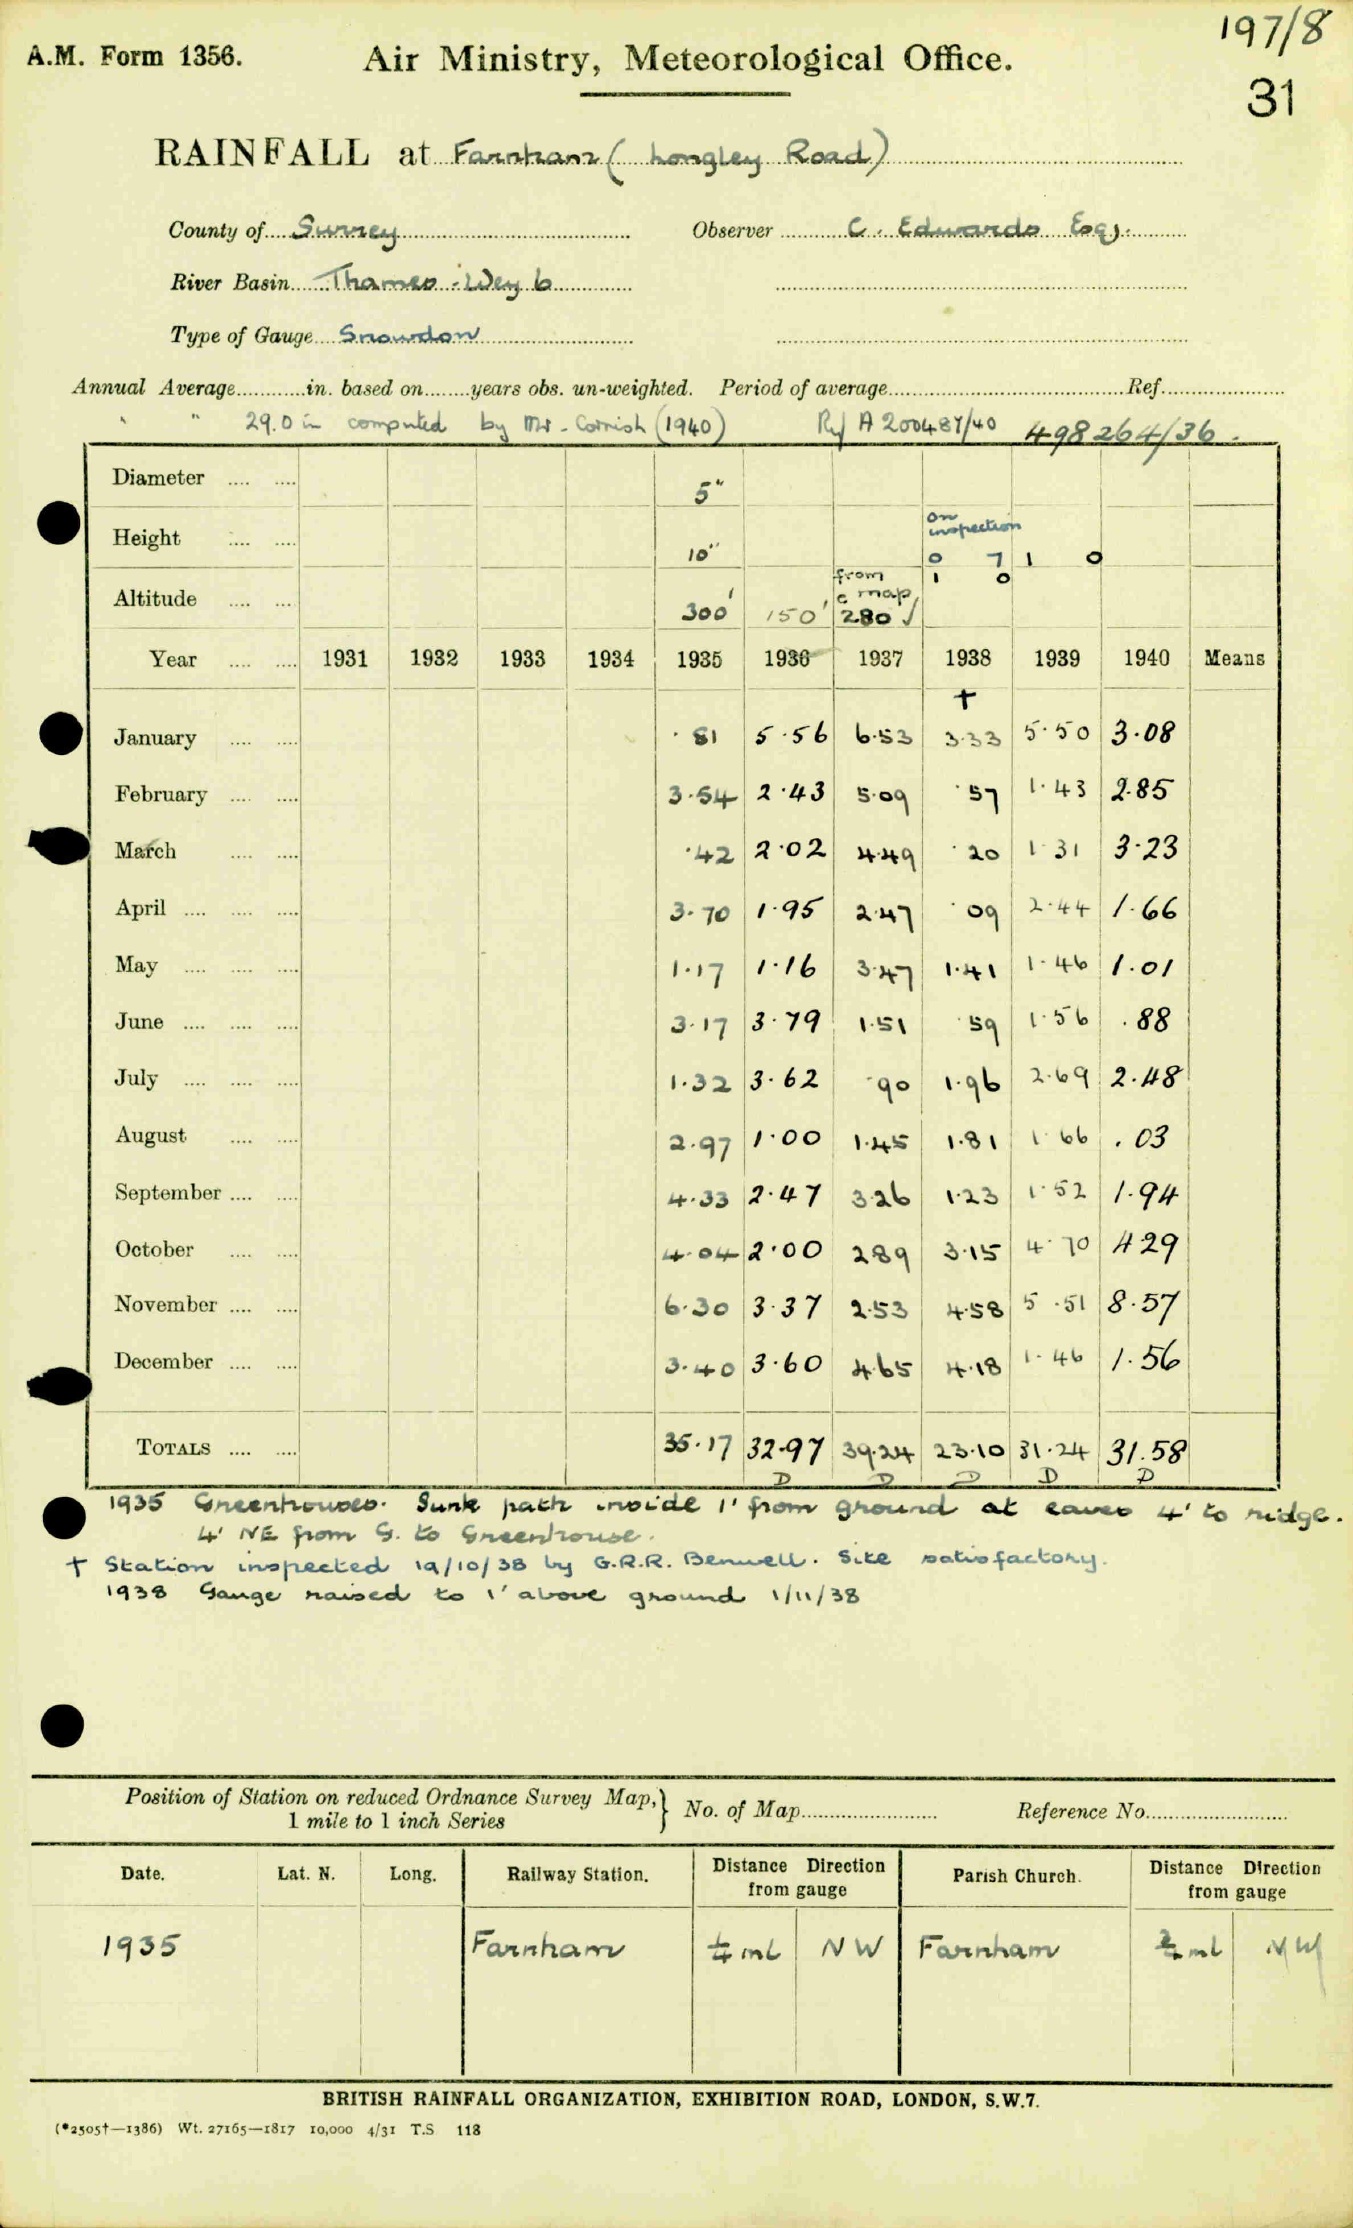 197/8
A.M. Form 1356. Air Ministry, Meteorological Office.
31
RAINFALL at Farnham (Longley Road)
County of Surrey Observer C. Edwards Esq.
River Basin Thames - Wey b
Type of Gauge Snowdon
Annual Average............in. based on........years obs. un-weighted. Period of average............Ref............
" " 29.0 in computed by Mr. Cornish (1940) Ref A 200487/40 498264/36.
Diameter .... .... 5"
on
inspection
Height .... .... 10" 0 7 1 0
from 1 0
c map
Altitude .... .... 300' 150' 280 √
Year .... .... 1931 1932 1933 1934 1935 1936 1937 1938 1939 1940 Means
†
January .... .... ·81 5·56 6·53 3·33 5·50 3·08
February .... .... 3·54 2·43 5·09 ·57 1·43 2·85
March .... .... ·42 2·02 4·49 ·20 1·31 3·23
April .... .... .... 3·70 1·95 2·47 ·09 2·44 1·66
May .... .... .... 1·17 1·16 3·47 1·41 1·46 1·01
June .... .... .... 3·17 3·79 1·51 ·59 1·56 .88
July .... .... .... 1·32 3·62 ·90 1·96 2·69 2·48
August .... .... 2·97 1·00 1·45 1·81 1·66 .03
September .... .... 4·33 2·47 3·26 1·23 1·52 1·94
October .... .... 4·04 2·00 2 89 3·15 4·70 4 29
November .... .... 6·30 3·37 2·53 4·58 5·51 8·57
December .... .... 3·40 3·60 4·65 4·18 1·46 1·56
TOTALS .... .... 35·17 32·97 39·24 23·10 31·24 31.58
D D D D D
1935 Greenhouses. Sunk path inside 1' from ground at eaves 4' to ridge.
4' NE from G. to Greenhouse.
† Station inspected 19/10/38 by G.R.R. Benwell. Site satisfactory.
1938 Gauge raised to 1' above ground 1/11/38
Position of Station on reduced Ordnance Survey Map,
1 mile to 1 inch Series } No. of Map............ Reference No............
Date. Lat. N. Long. Railway Station. Distance Direction from gauge Parish Church. Distance Direction from gauge
1935 Farnham ¼ ml NW Farnham ¾ ml NW
BRITISH RAINFALL ORGANIZATION, EXHIBITION ROAD, LONDON, S.W.7.
(*2505†—1386) Wt. 27165—1817 10,000 4/31 T.S 118